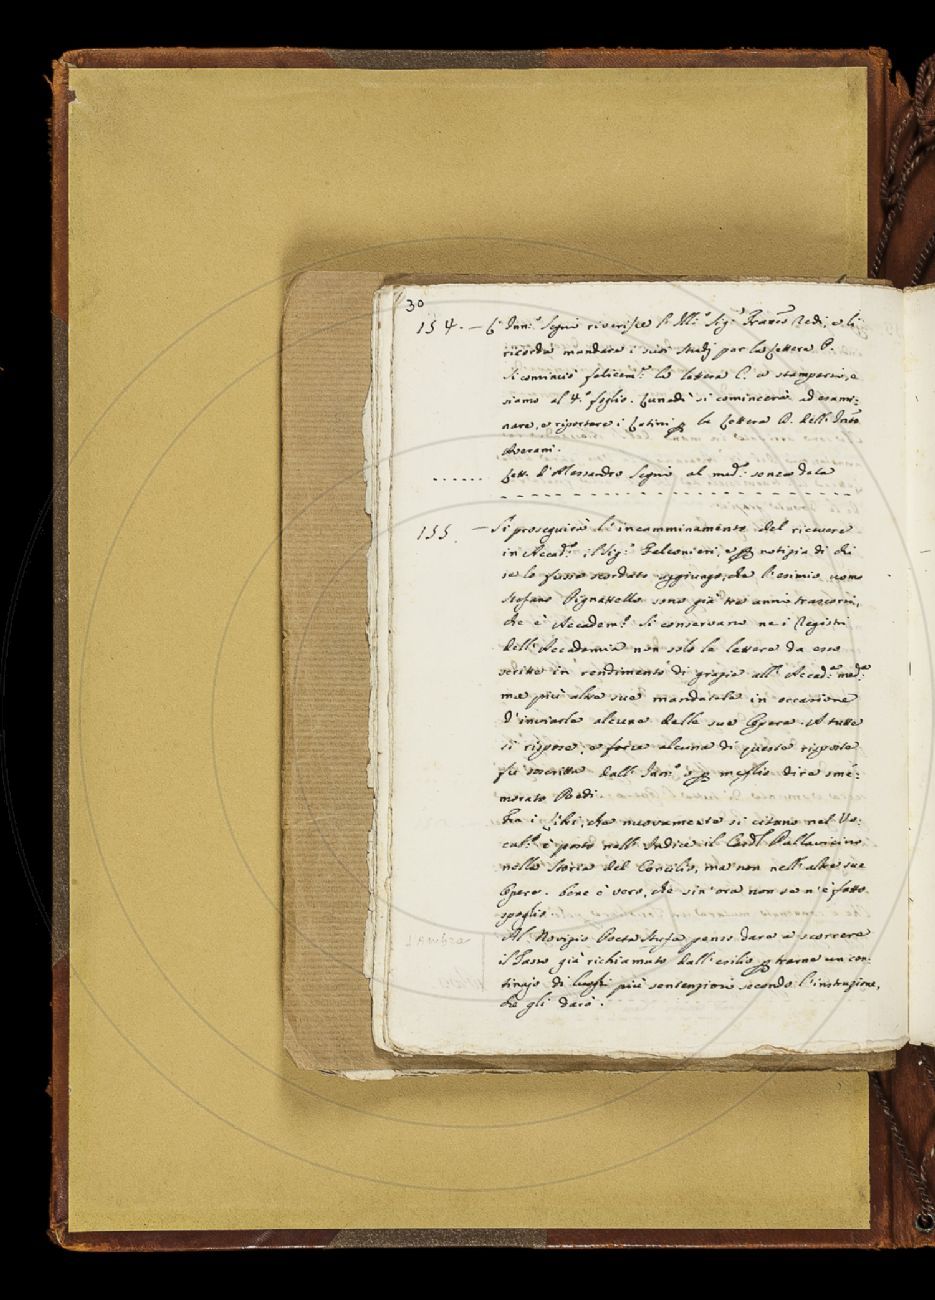 30
154. — L'Inn.º Segni riverisce l'Ill.º Sig.r Franc.º Redi, e li
ricorda mandare i suoi studj per la Lettera P.
Si cominciò felicem.e la lettera C. a stamparsi, e
siamo al 4.º foglio. Lunedì si comincerà ad esami:
nare, e riportare i Latini p la Lettera D. dell'Inn.to
Averani.
. . . . . . Lett. d'Alessandro Segni al med.º senza data
155. — Si proseguirà l'incamminamento del ricevere
in Accad.a il Sig.r Falconieri, e p notizia di chi
se lo fosse scordato aggiungo, che l'esimio uomo
Stefano Pignattello sono già tre anni trascorsi,
che è Accadem.º Si conservano ne i Registri
dell'Accademia non solo la lettera da esso
scritta in rendimento di grazie all'Accad.a med.a
ma più altre sue mandatele in occasione
d'inviarle alcuna delle sue Opere. A tutte
si rispose, e forse alcuna di queste risposte
fu scritta dall'Inn.º o p meglio dire sme:
morato Redi.
Fra i Libri, che nuovamente si citano nel Vo:
cab.º è posto nell'Indice il Card.l Pallavicino
nella Storia del Concilio, ma non nell'altre sue
Opere. Bene è vero, che sin'ora non se n'è fatto
spoglio.
Al Novizio Poeta Stufa penso dare a scorrere
il Tasso già richiamato dall'esilio p trarne un con:
tinajo di luoghi più sentenziosi secondo l'instruzione,
che gli darò.